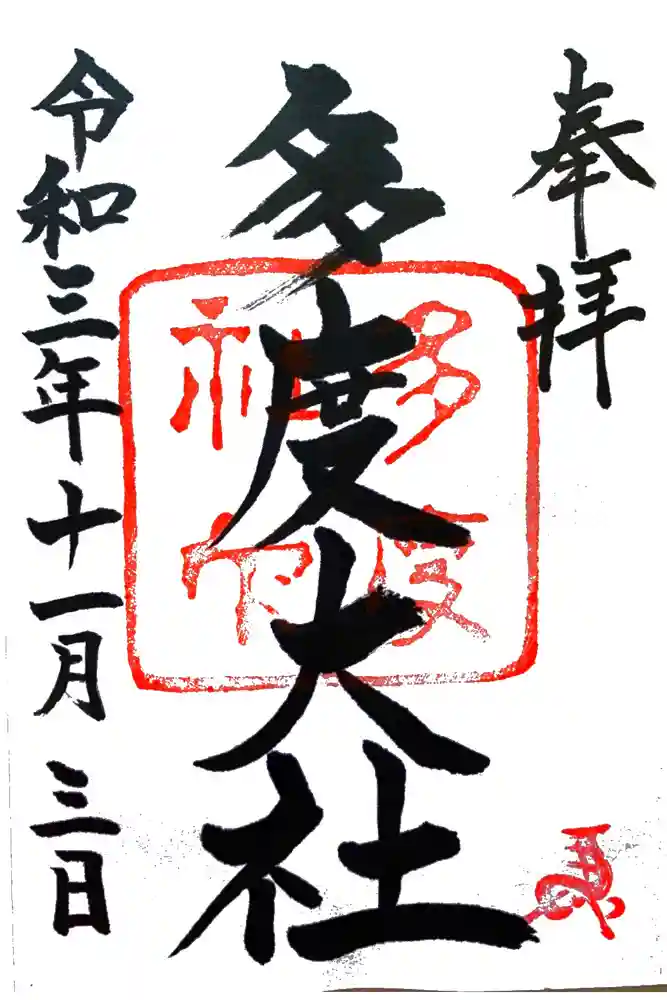 奉拝
多度大社
令和三年十一月三日
多度
神宮